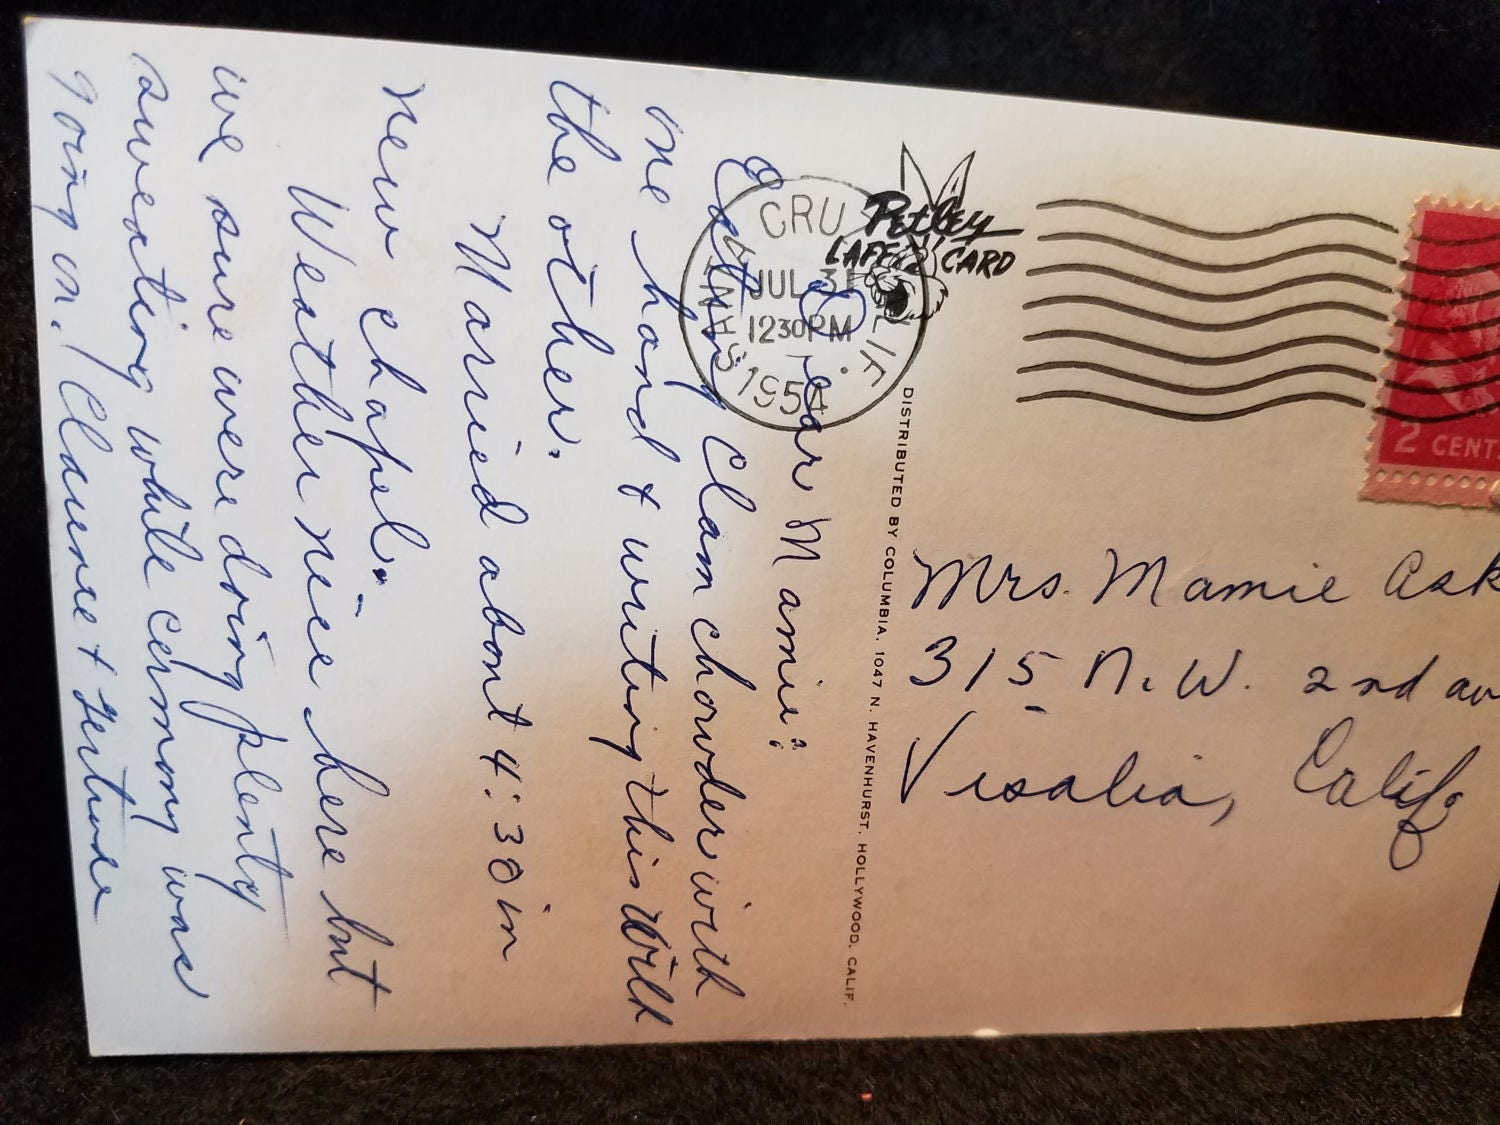 Dear Mamie:
Eating Clam chowder with
one hand & writing this with
the other.
Married about 4:30 in
new chapel.
Weather nice here but
we sure were doing plenty
sweating while cermony was
going on. Clarence & Gertrude
Petley
LAFF CARD
SANTA CRUZ CALIF.
JUL 31
1230 PM
1954
DISTRIBUTED BY COLUMBIA, 1047 N. HAVENHURST, HOLLYWOOD, CALIF.
2 CENTS
Mrs. Mamie Ask
315 N.W. 2nd av
Visalia, Calif